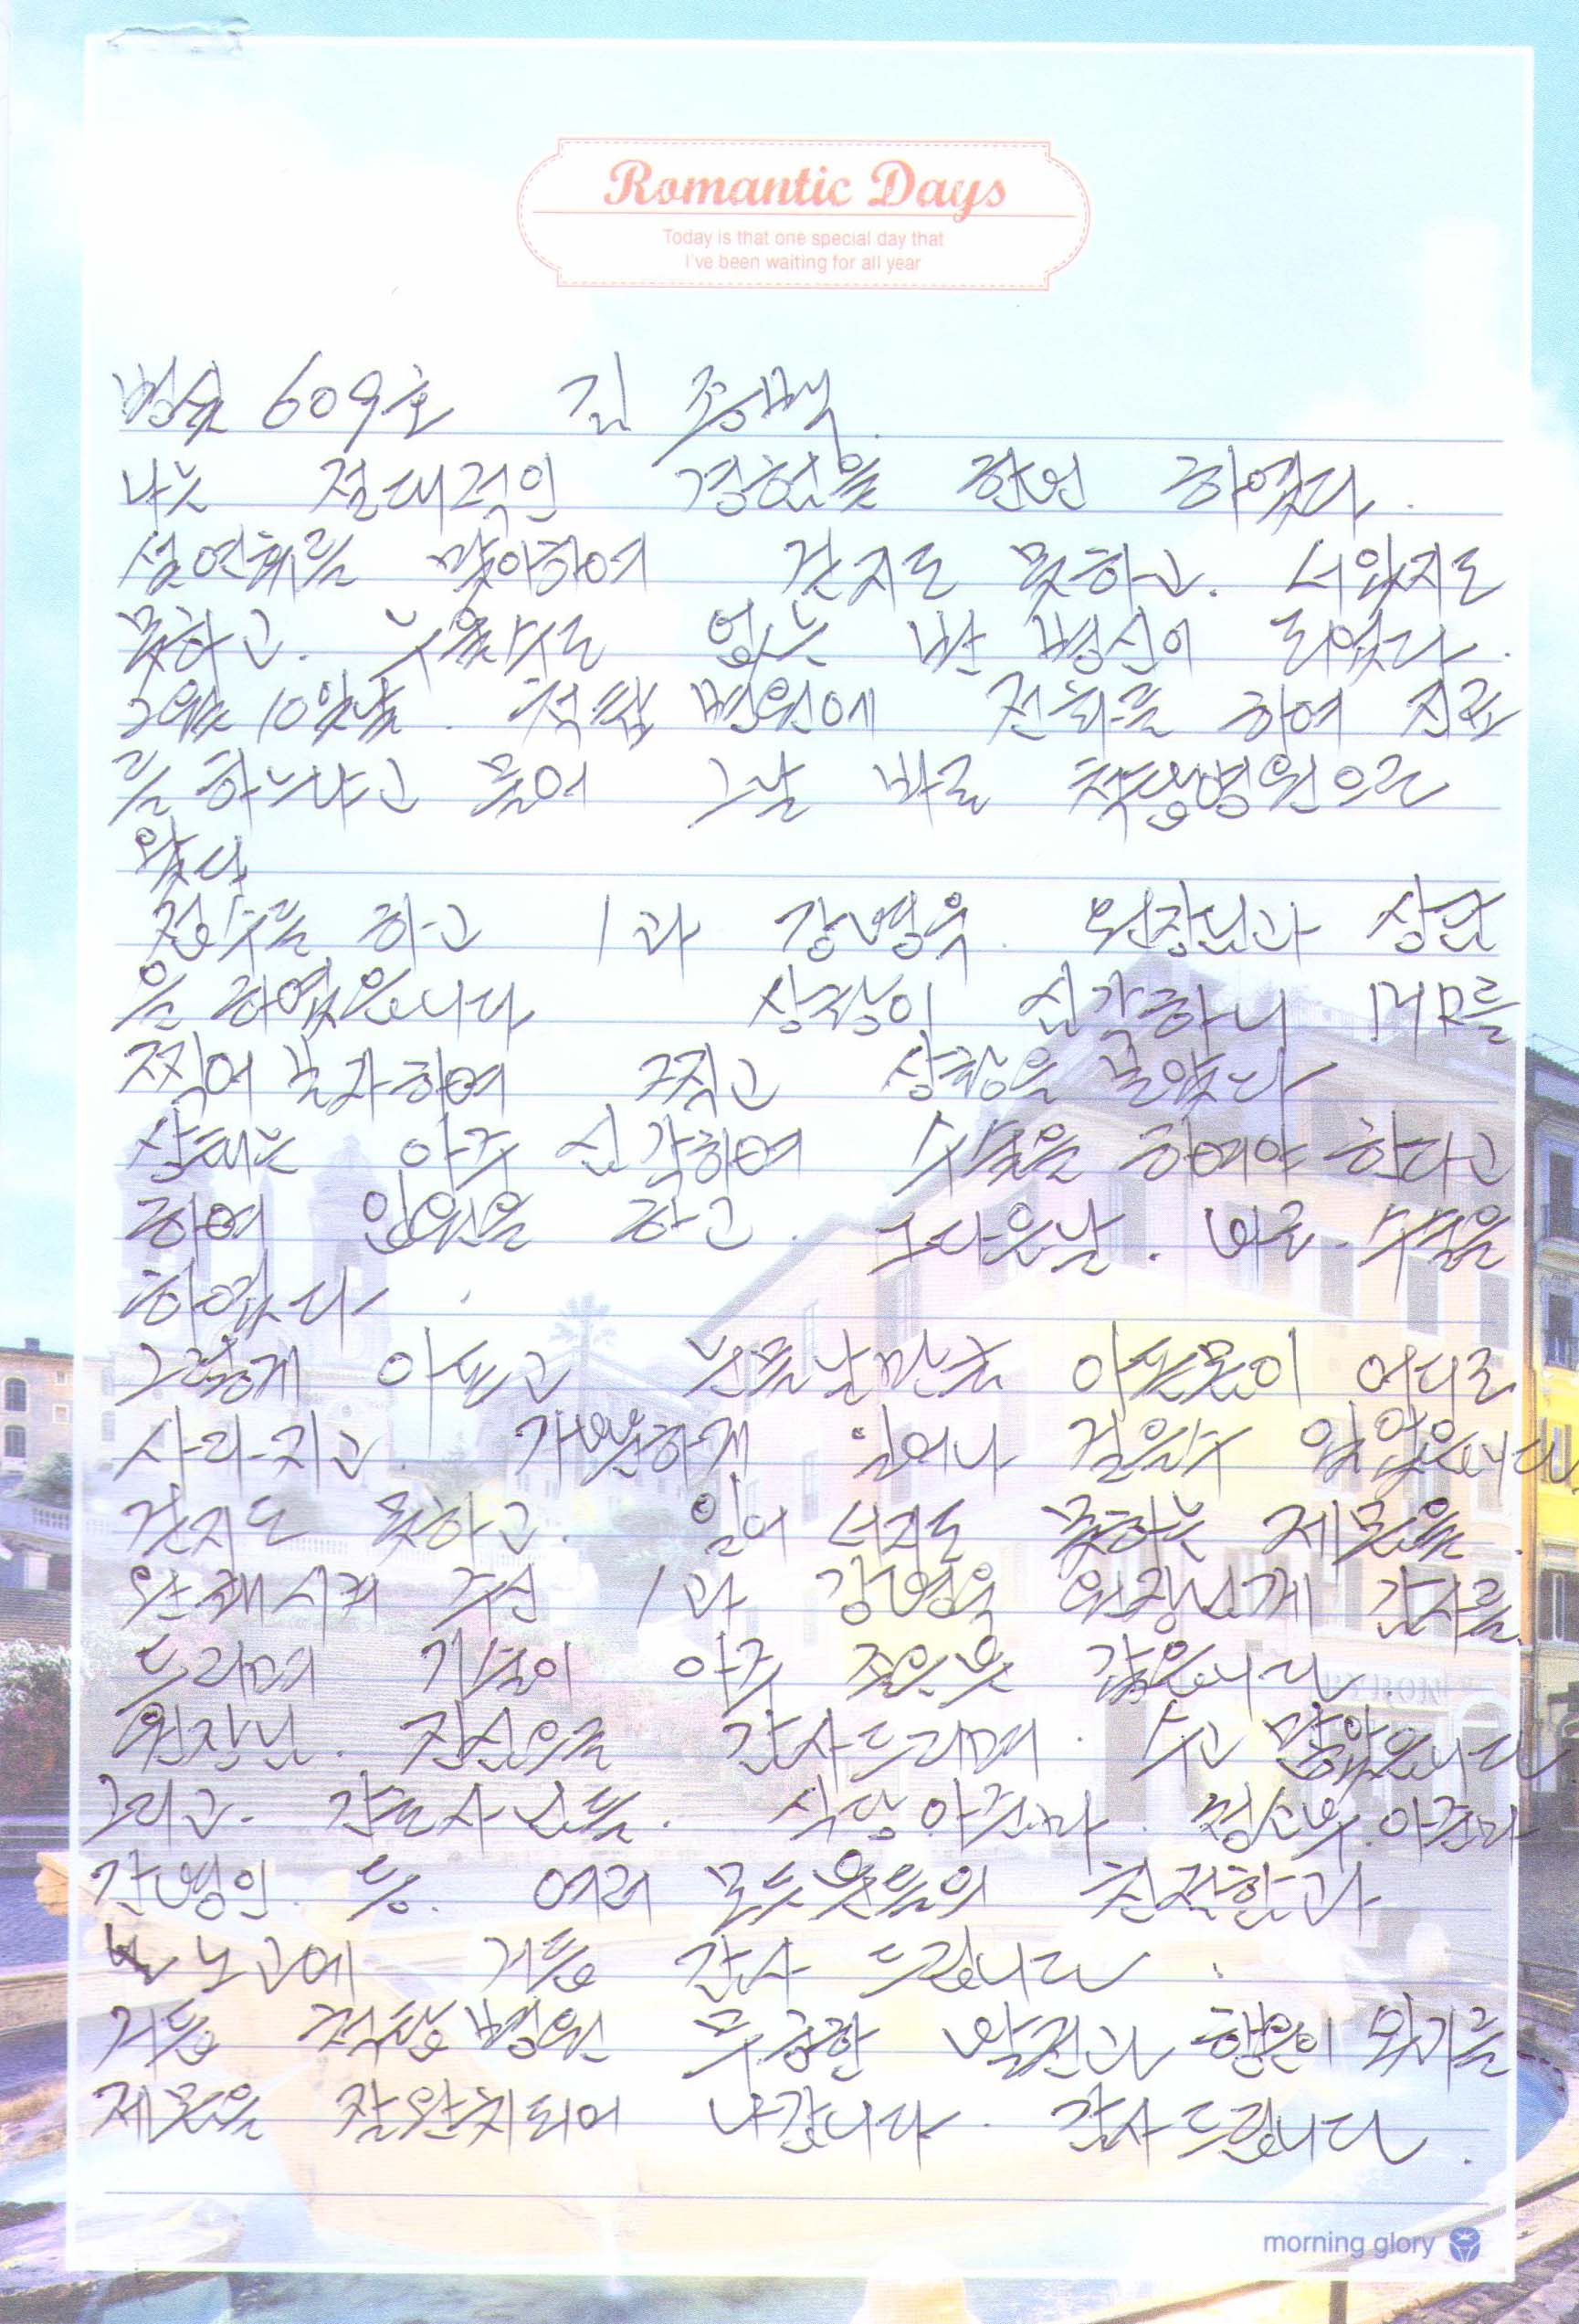 Romantic Days
Today is that one special day that
I've been waiting for all year
병실 609호 김 종백
나는 절대적인 경험을 한번 하였다.
설 연휴를 맞이하여 걷지도 못하고. 서있지도
못하고. 누울수도 없는 난 병신이 되었다.
2월 10일날. 척탑 병원에 전화를 하여 진료
를 하느냐고 물어 그날 바로 척탑병원으로
왔다
접수를 하고 1과 강병욱. 원장님과 상담
을 하였읍니다 상황이 심각하니 MRI를
찍어 보자하여 찍고 상황을 보았다
상태는 아주 심각하여 수술을 하여야 한다고
하여 입원을 하고. 그다음날. 바로. 수술을
하였다.
그렇게 아프고 눈물날만큼 아픈몸이 어디로
사라지고. 가뿐하게 일어나 걸을수 있었읍니다
걷지도 못하고. 일어 서지도 못하는 제몸을.
완쾌시켜 주신 1과 강병욱 원장님께 감사를
드리며 기분이 아주 좋은것 같읍니다.
원장님. 진심으로 감사드리며. 수고 많았읍니다
그리고. 간호사님들. 식당아줌마. 청소부.아줌마
간병인. 등. 여러 모두분들의 친절함과
노고에 거듭 감사 드립니다.
거듭 척탑병원 무궁한 발전과 행운이 왔기를
제몸을 잘완치되어 나갑니다. 감사드립니다.
morning glory